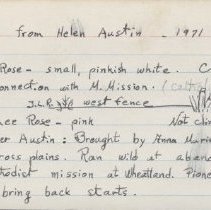 from Helen Austin - 1971
Rose - small, pinkish white. C
onnection with M. Mission. (Calt
J.L.R. west fence
Lee Rose - pink Not clim
er Austin: Brought by Anna Mari
ross plains. Ran wild at aband
hodist mission at Wheatland. Pione
bring back starts.